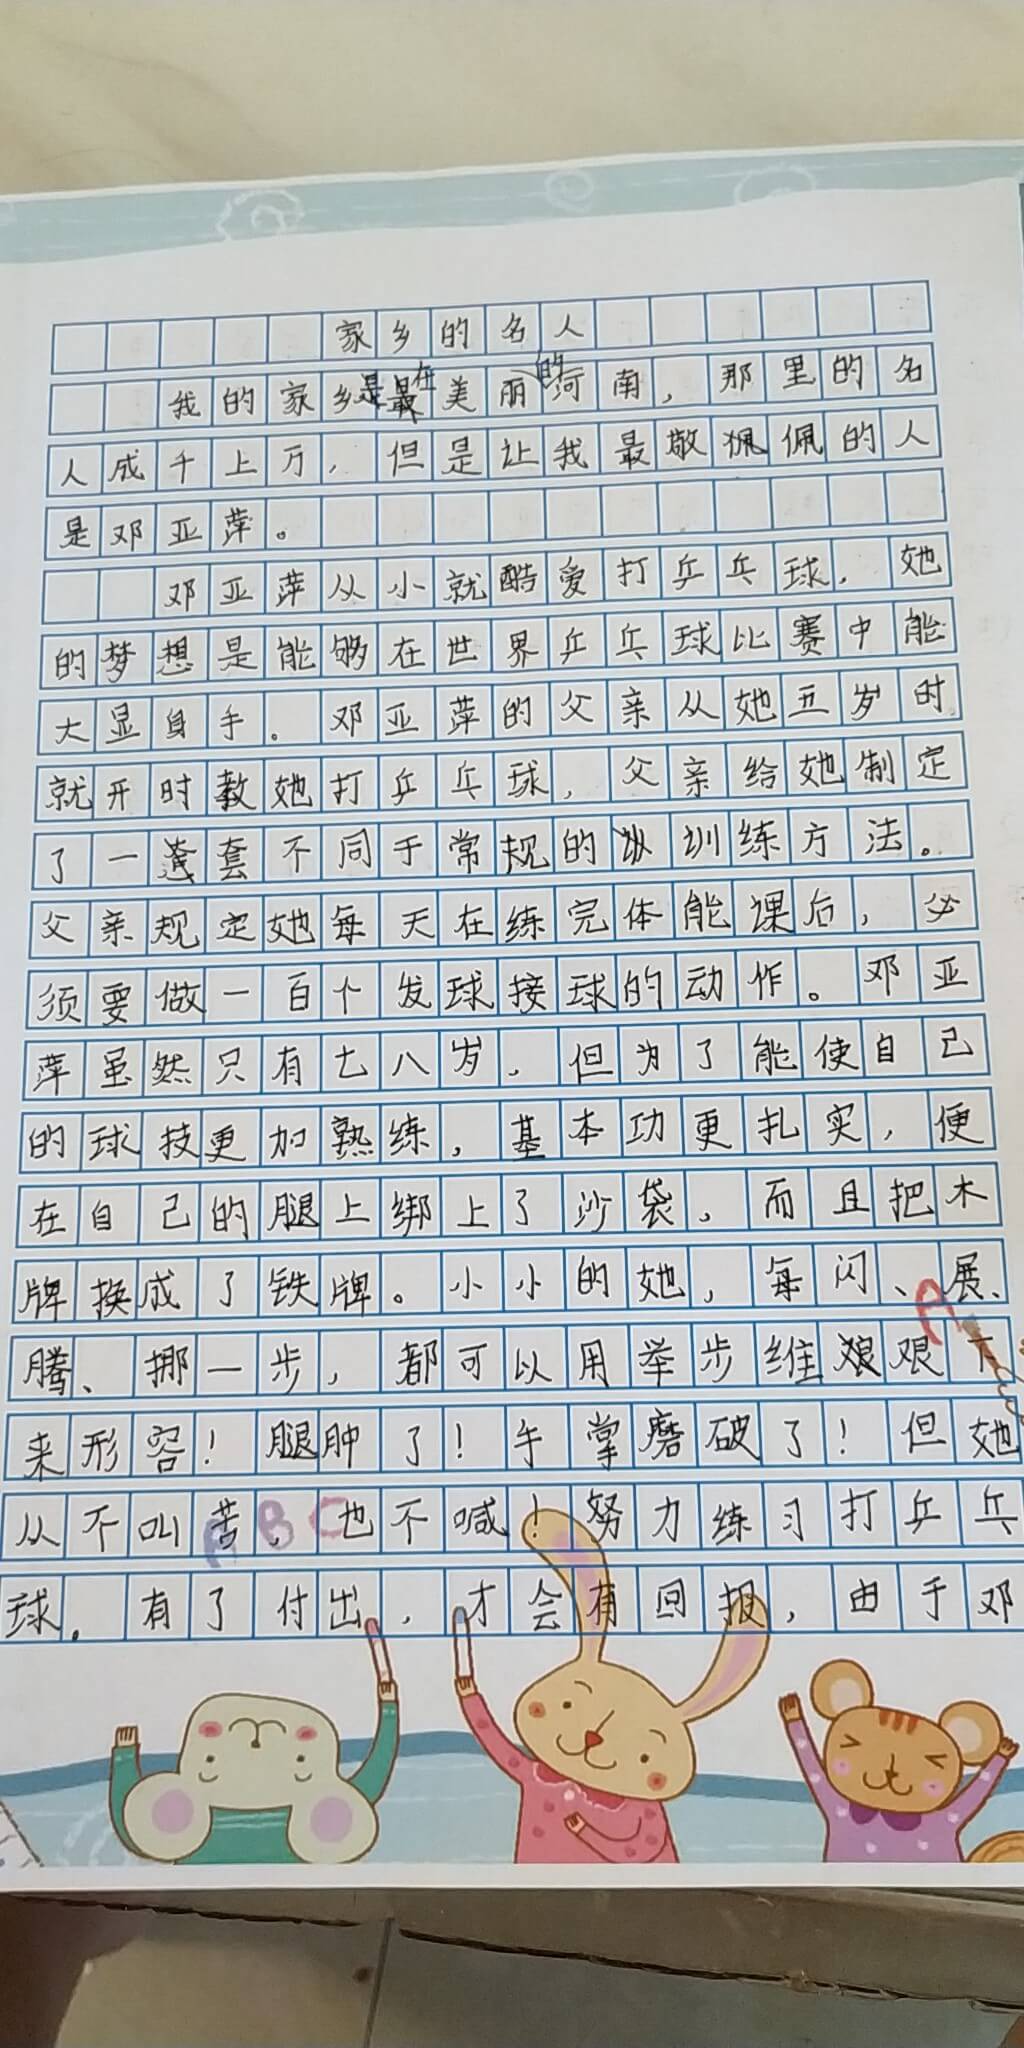 家乡的名人
我的家乡在美丽的河南，那里的名
人成千上万，但是让我最敬佩的人
是邓亚萍。
邓亚萍从小就酷爱打乒乓球，她
的梦想是能够在世界乒乓球比赛中能
大显身手。邓亚萍的父亲从她五岁时
就开时教她打乒乓球，父亲给她制定
了一套不同于常规的训练方法。
父亲规定她每天在练完体能课后，必
须要做一百个发球接球的动作。邓亚
萍虽然只有七八岁，但为了能使自己
的球技更加熟练，基本功更扎实，便
在自己的腿上绑上了沙袋，而且把木
牌换成了铁牌。小小的她，每闪、展、
腾、挪一步，都可以用举步维艰
来形容！腿肿了！手掌磨破了！但她
从不叫苦，也不喊！努力练习打乒乓
球。有了付出，才会有回报，由于邓
A
A B C